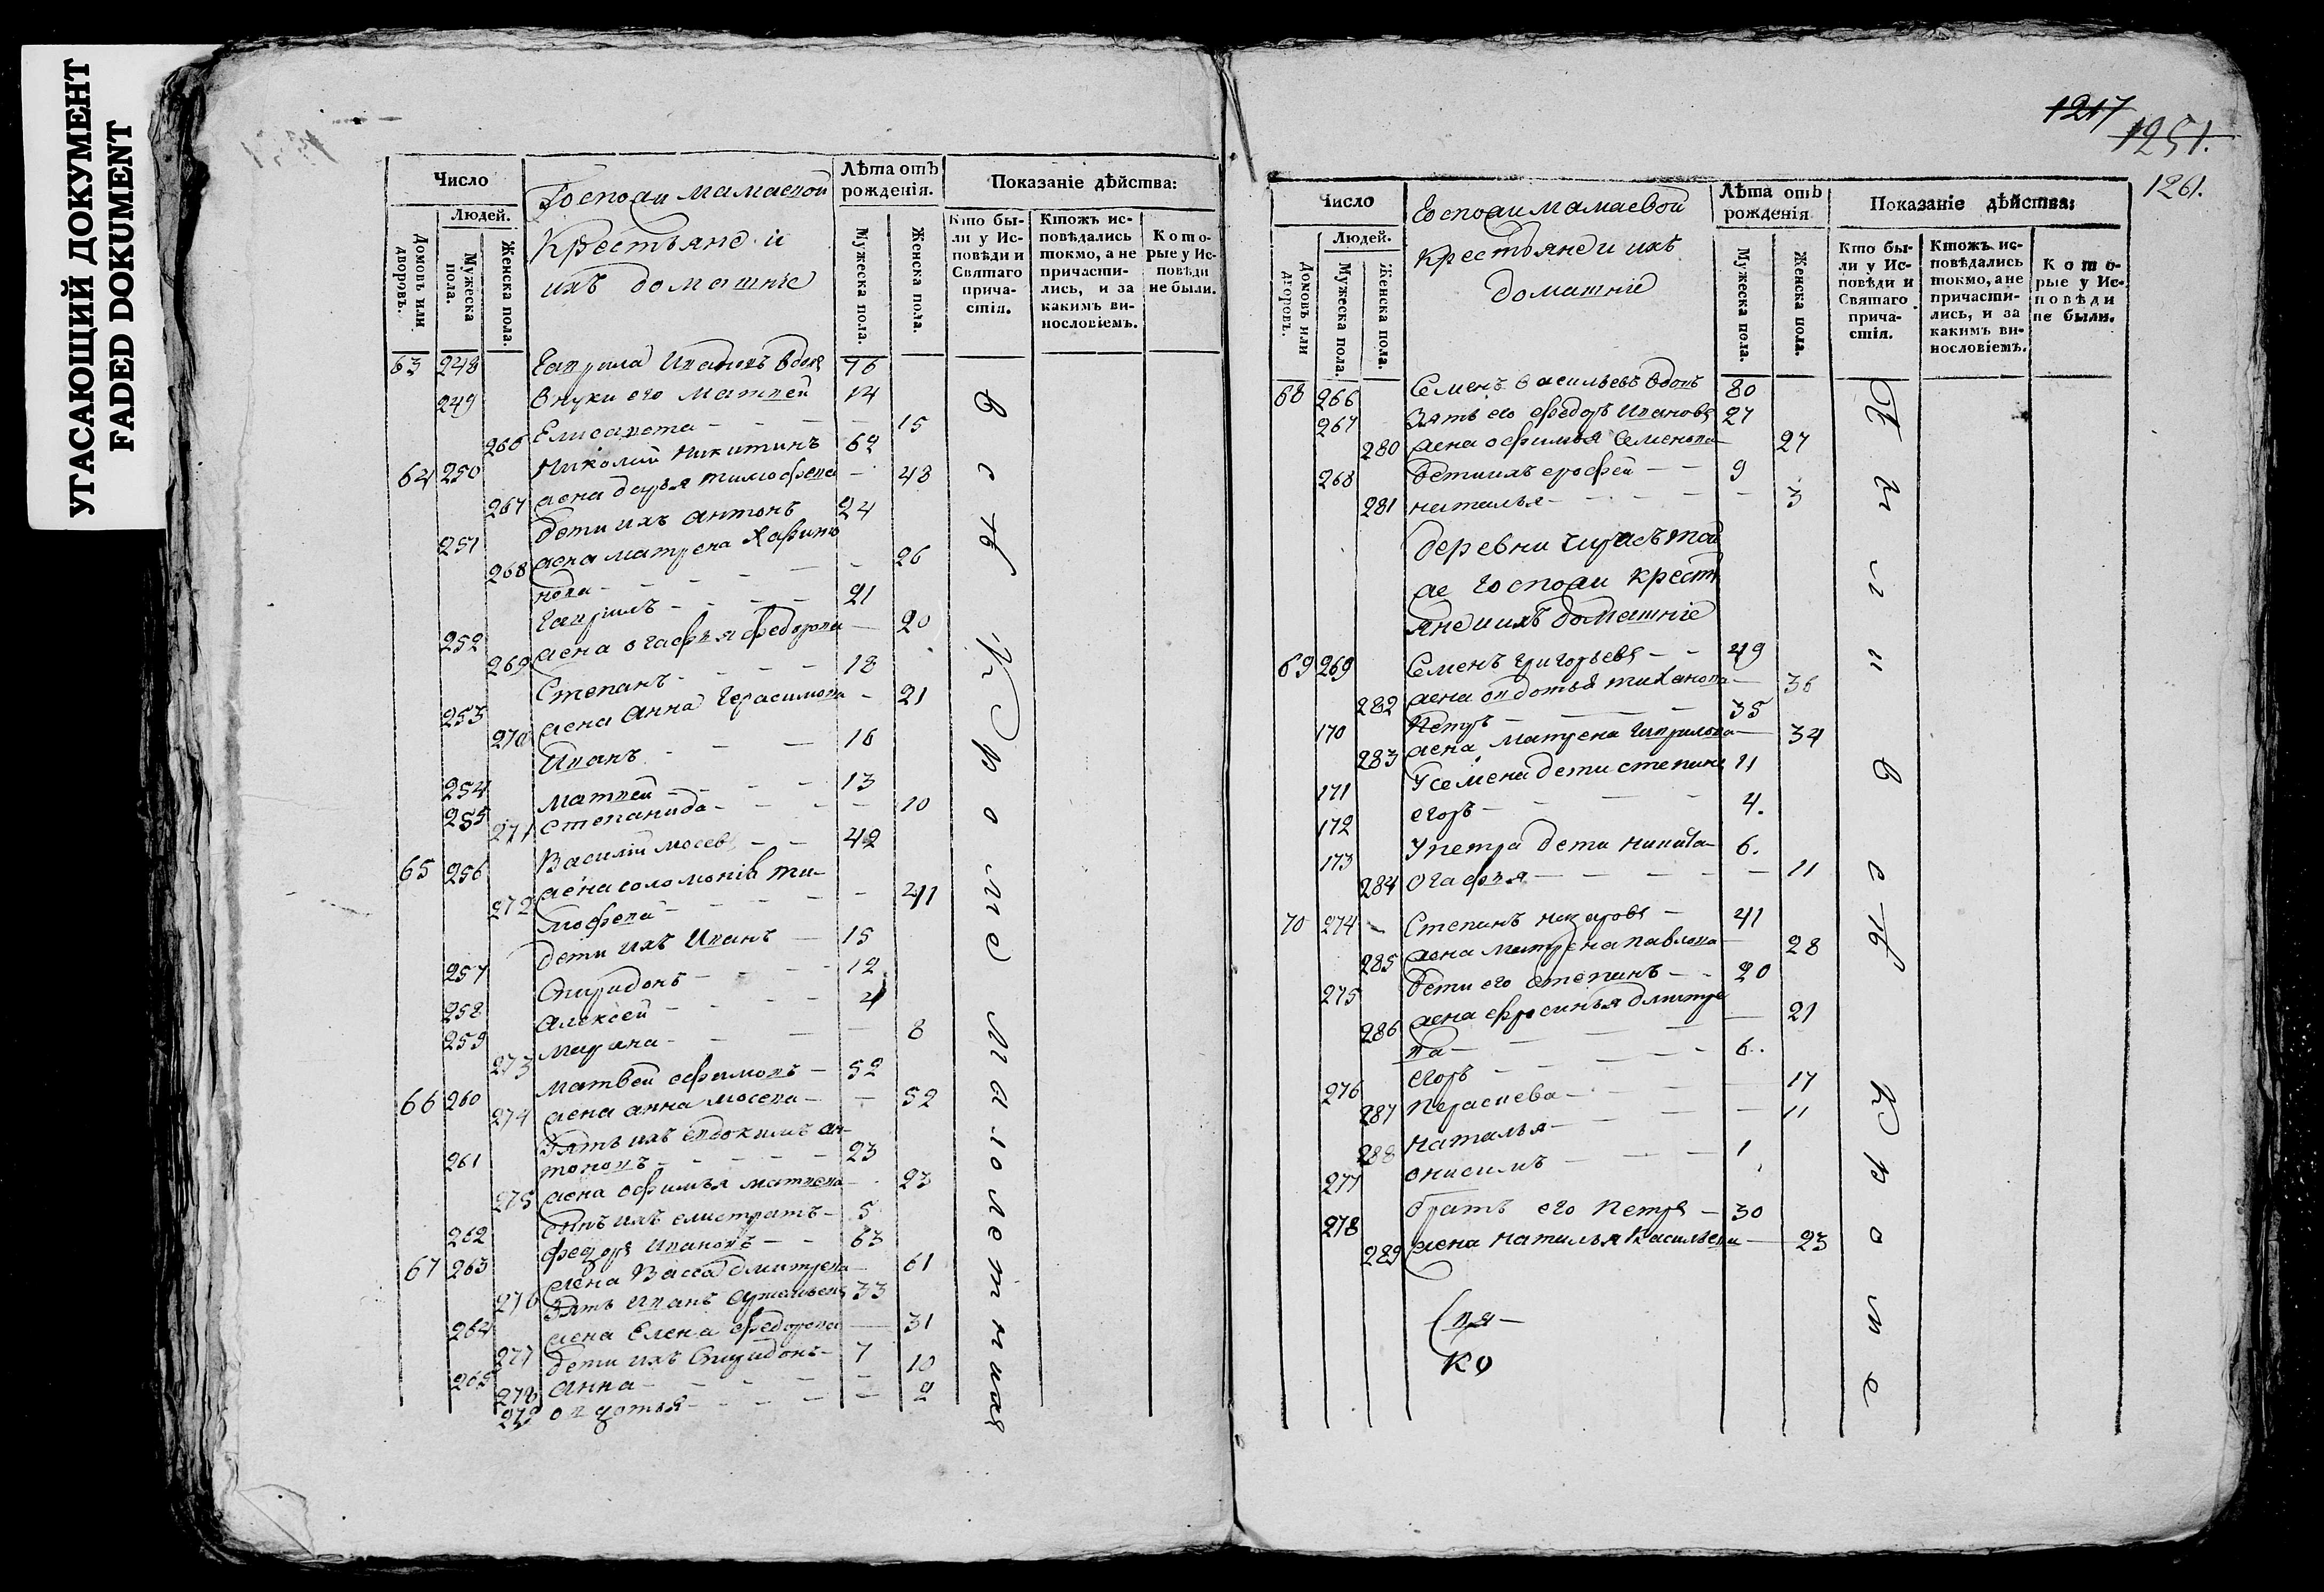 УГАСАЮЩИЙ ДОКУМЕНТ
FADED DOKUMENT
Число
Людей.
Домовъ или дворовъ.
Мужеска пола.
Женска пола.
Госпожи Мамаевой
крестьяне и
ихъ домашніе
Лѣта отъ рожденія.
Мужеска пола.
Женска пола.
Показаніе дѣйства:
Кто бы-
ли у Ис-
повѣди и
Святаго
прича-
стія.
Ктожъ ис-
повѣдались
токмо, а не
причасти-
лись, и за
какимъ ви-
нословіемъ.
Кото-
рые у Ис-
повѣди
не были.
63 248 Гаврила Ивановъ вдовъ 76
249 внуки его Матвей 14
266 Елисавета - 15
64 250 Николай Никитинъ 62
267 жена дарья тимофева - 48
251 дети ихъ антонъ 24
268 жена матрена Харито
нова - 26
252 Гаврилъ - 21
269 жена огафья федорова - 20
253 Степанъ - 18
270 жена Анна Герасимова - 21
254 Иванъ - 16
255 матвей - 13
271 степанида - 10
65 256 Василий мосевъ - 42
272 жена соломонія ти-
мофева - 41
257 дети ихъ Иванъ - 15
258 Спиридонъ - 12
259 алексей - 4
273 марина - 8
66 260 матвей ефимовъ - 52
274 жена анна мосева - 52
261 Зять ихъ евдокимъ ан-
тоновъ - 23
275 жена офимья матвева - 23
262 сынъ ихъ елистратъ - 5
67 263 федоръ Ивановъ - 63
276 жена Васса дмитрева - 61
264 Зять Иванъ 33
277 жена Елена федорова - 31
265 дети ихъ Спиридонъ - 7
278 анна - 10
279 овдотья - 2
всѣ кроме малолетнихъ
1217
1251.
1261.
Число
Людей.
Домовъ или дворовъ.
Мужеска пола.
Женска пола.
Госпожи Мамаевой
крестьяне и ихъ
домашніе
Лѣта отъ рожденія
Мужеска пола.
Женска пола.
Показаніе дѣйства:
Кто бы-
ли у Ис-
повѣди и
Святаго
прича-
стія.
Ктожъ ис-
повѣдались
токмо, а не
причасти-
лись, и за
какимъ ви-
нословіемъ.
Кото-
рые у Ис-
повѣди
не были.
68 266 Семенъ васильевъ вдовъ 80
267 Зять его федоръ Ивановъ 27
280 жена офимья Семенова - 27
268 дети ихъ ерофей - 9
281 наталья - 3
деревни той
же Госпожи крестъ
яне и ихъ домашніе
69 269 Семенъ григорьевъ - 49
282 жена овдотья тиханова - 36
170 Петръ - 35
283 жена матрена гаврилова - 34
171 У семена дети степанъ 11
172 егоръ - 4.
173 У петра дети никита - 6.
284 огафья - 11
70 274 Степанъ назаровъ - 41
285 жена матрена павлова - 28
275 дети его степанъ - 20
286 жена ефросинья дмитре
ва - 21
276 егоръ - 6.
287 Парасцева - 17
288 Наталья - 11
277 онисимъ - 1
278 братъ его Петръ - 30
289 жена наталья васильева - 23
были всѣ кроме